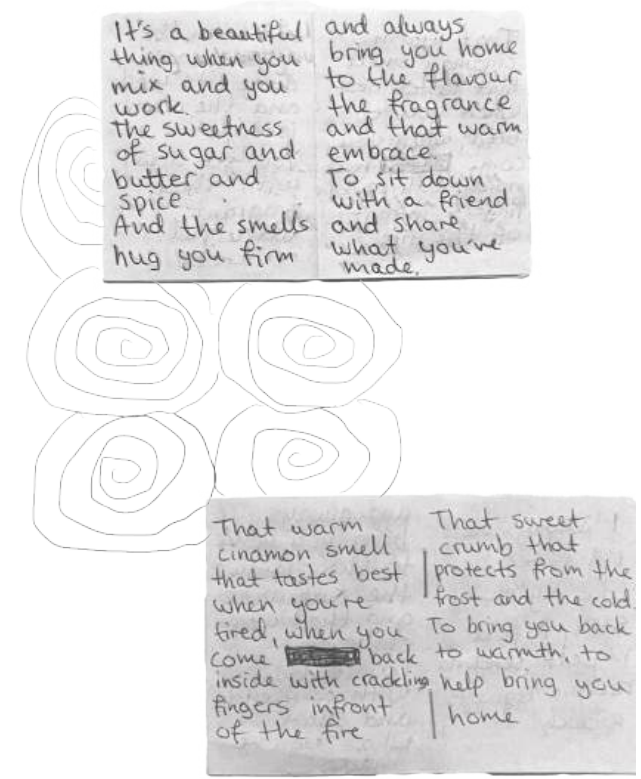 It's a beautiful
thing when you
mix and you
work.
The sweetness
of sugar and
butter and
spice
And the smells
hug you firm
and always
bring you home
to the flavour
the fragrance
and that warm
embrace.
To sit down
with a friend
and share
what you've
made.
That warm
cinamon smell
that tastes best
when you're
tired, when you
come back
inside with crackling
fingers infront
of the fire
That sweet
crumb that
protects from the
frost and the cold
To bring you back
to warmth, to
help bring you
home